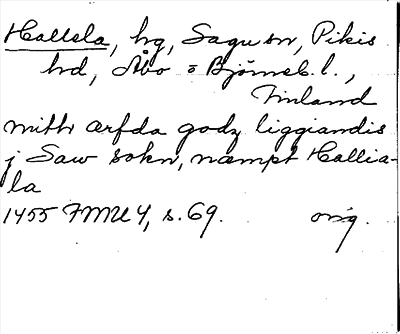 Hallela, hg, Sagu sn, Pikis
hd, Åbo o Björneb. l.,
Finland
mith ærfda godz liggiandis
j Saw sokn, næmpt Hallia-
la
1455 FMU 4, s. 69. orig.